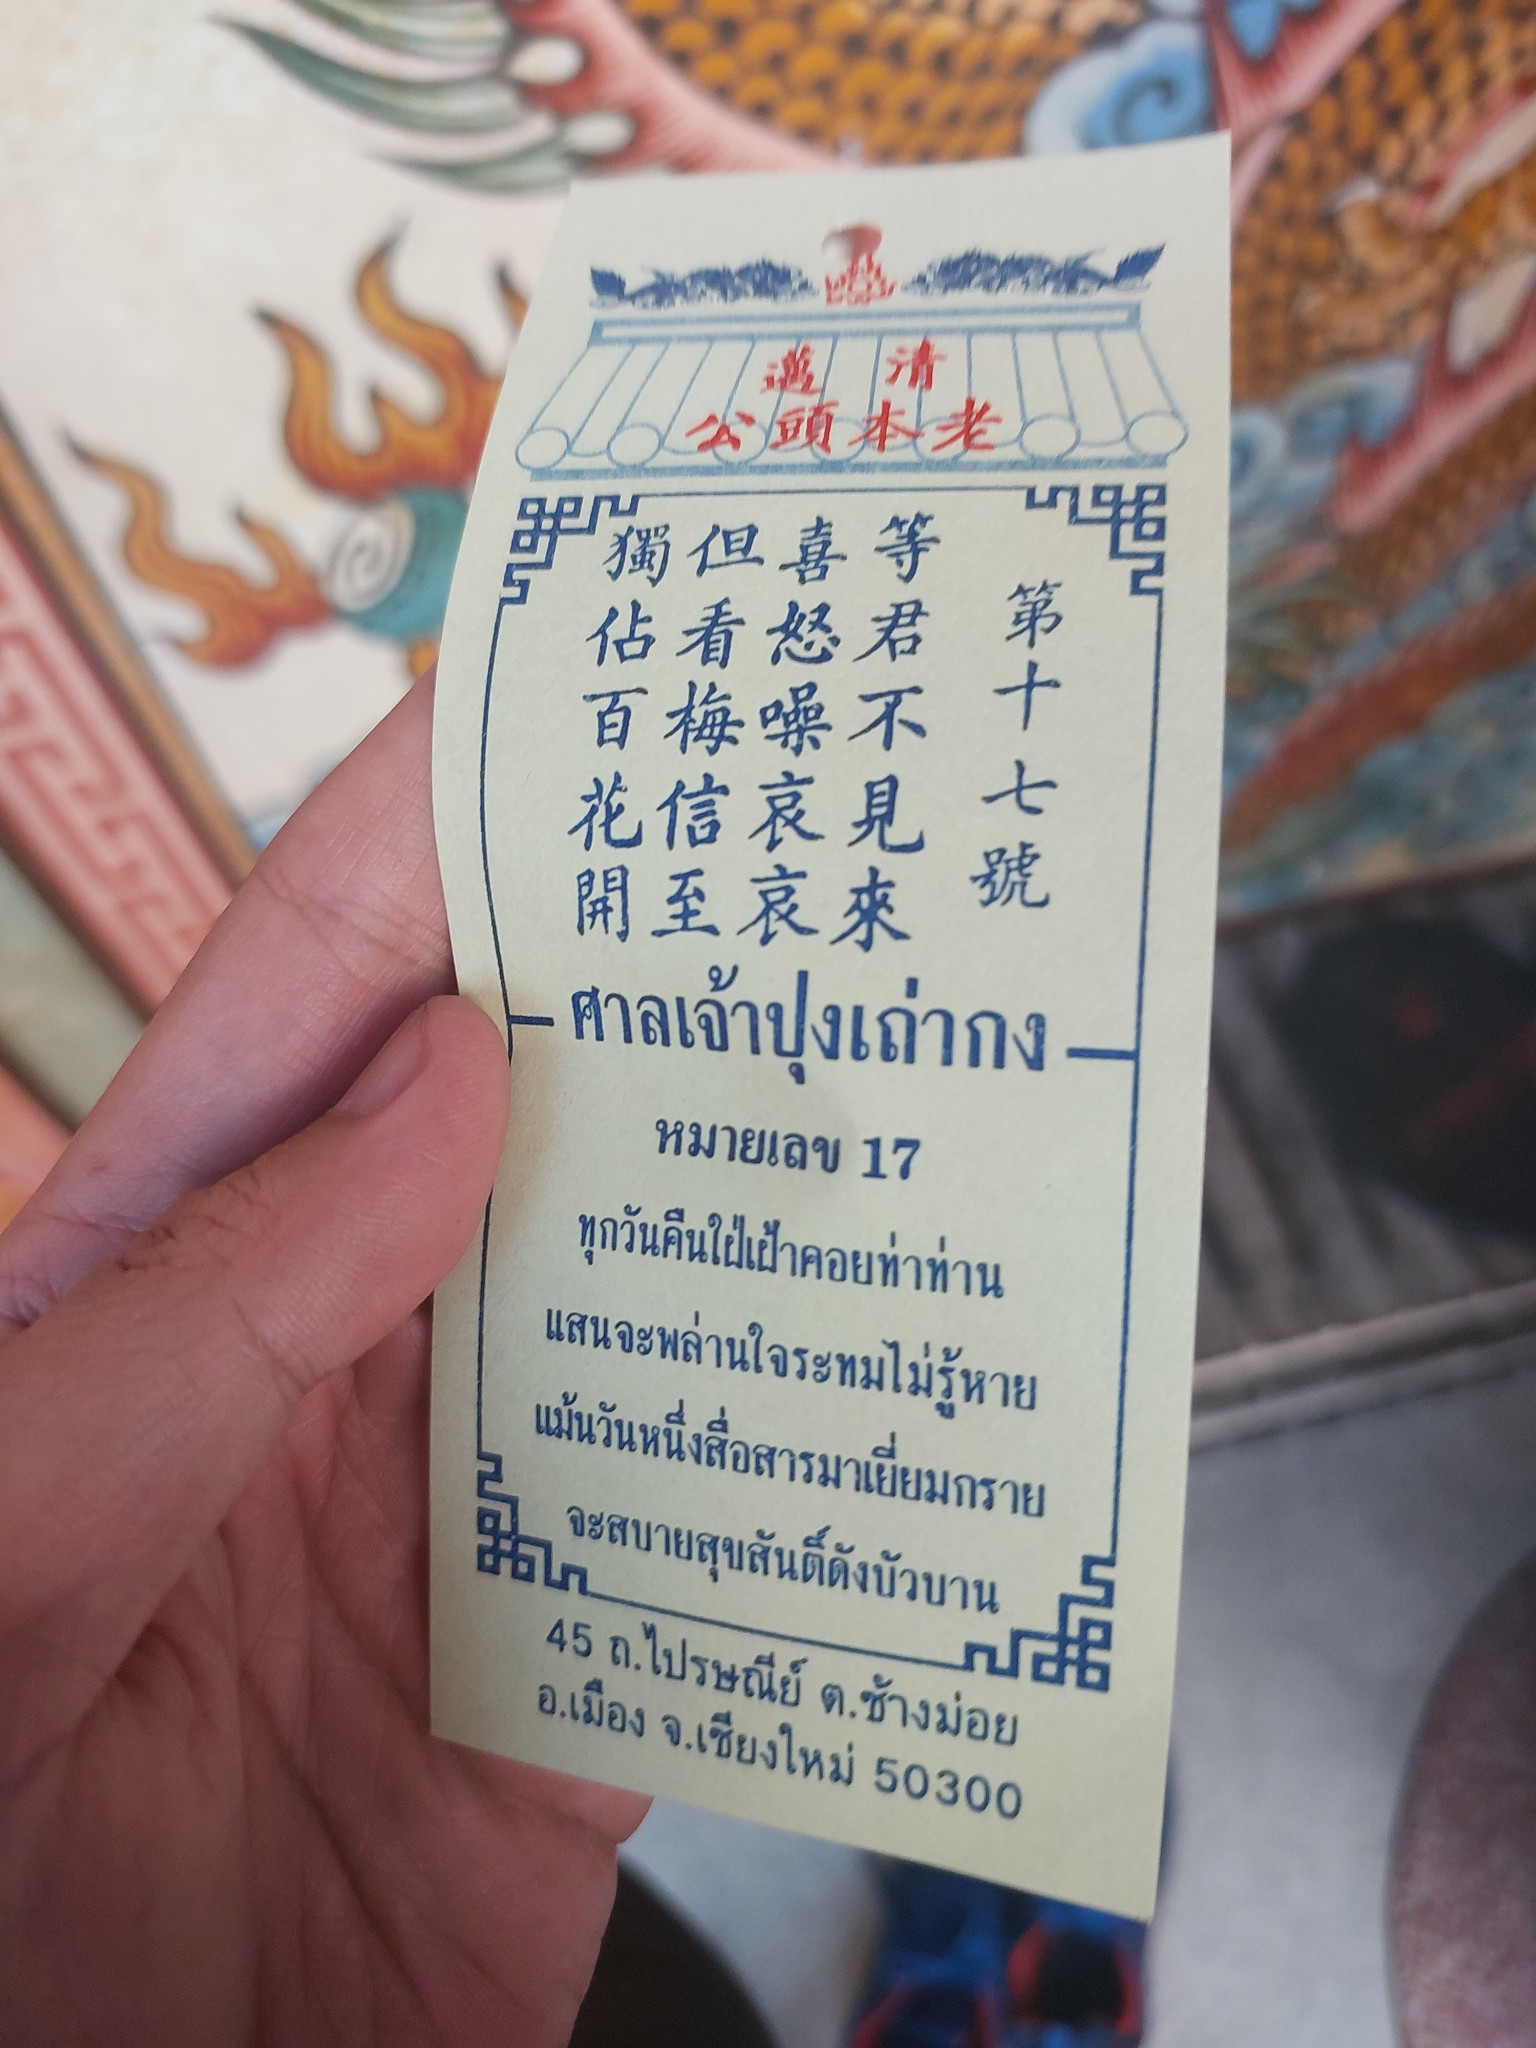 清邁
老本頭公
第十七號
等君不見來
喜怒噪哀哀
但看梅信至
獨佔百花開
ศาลเจ้าปุงเถ่ากง
หมายเลข 17
ทุกวันคืนใฝ่เฝ้าคอยท่าท่าน
แสนจะพล่านใจระทมไม่รู้หาย
แม้นวันหนึ่งสื่อสารมาเยี่ยมกราย
จะสบายสุขสันติ์ดังบัวบาน
45 ถ.ไปรษณีย์ ต.ช้างม่อย
อ.เมือง จ.เชียงใหม่ 50300